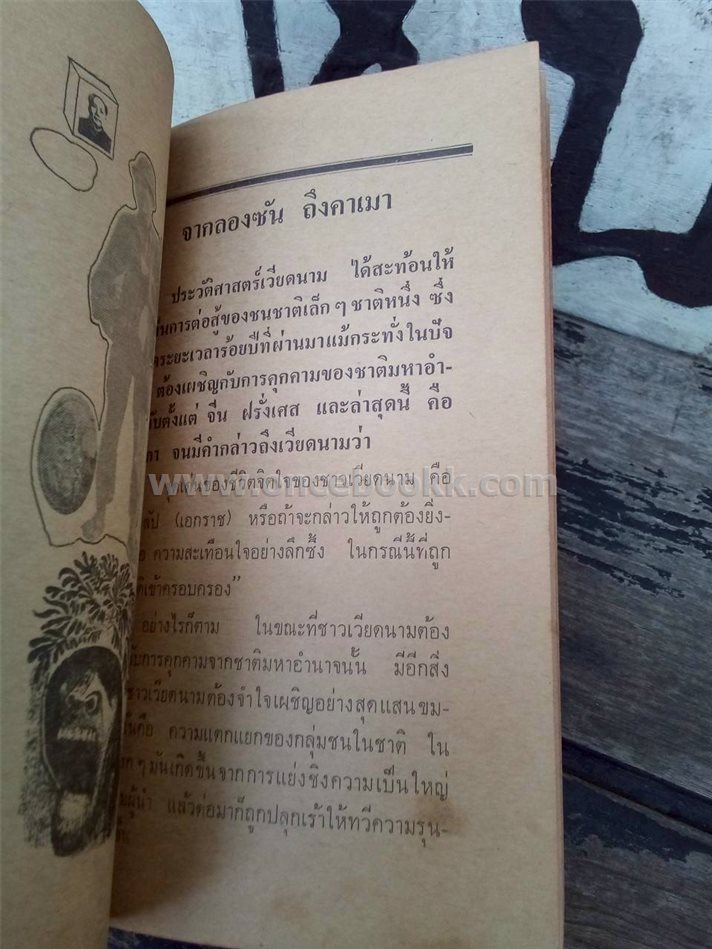 จากลองซัน ถึงคาเมา
ประวัติศาสตร์เวียดนาม ได้สะท้อนให้
การต่อสู้ของชนชาติเล็ก ๆ ชาติหนึ่ง ซึ่ง
ระยะเวลาร้อยปีที่ผ่านมาแม้กระทั่งในปัจ
ต้องเผชิญกับการคุกคามของชาติมหาอำ-
ตั้งแต่ จีน ฝรั่งเศส และล่าสุดนี้ คือ
จนมีคำกล่าวถึงเวียดนามว่า
ของชีวิตจิตใจของชาวเวียดนาม คือ
www.oncebookk.com
(เอกราช) หรือถ้าจะกล่าวให้ถูกต้องยิ่ง-
ความสะเทือนใจอย่างลึกซึ้ง ในกรณีนี้ที่ถูก
เข้าครอบครอง”
อย่างไรก็ตาม ในขณะที่ชาวเวียดนามต้อง
การคุกคามจากชาติมหาอำนาจนั้น มีอีกสิ่ง
ชาวเวียดนามต้องจำใจเผชิญอย่างสุดแสนขม-
คือ ความแตกแยกของกลุ่มชนในชาติ ใน
ๆ มันเกิดขึ้นจากการแย่งชิงความเป็นใหญ่
ผู้นำ แล้วต่อมาก็ถูกปลุกเร้าให้ทวีความรุน-